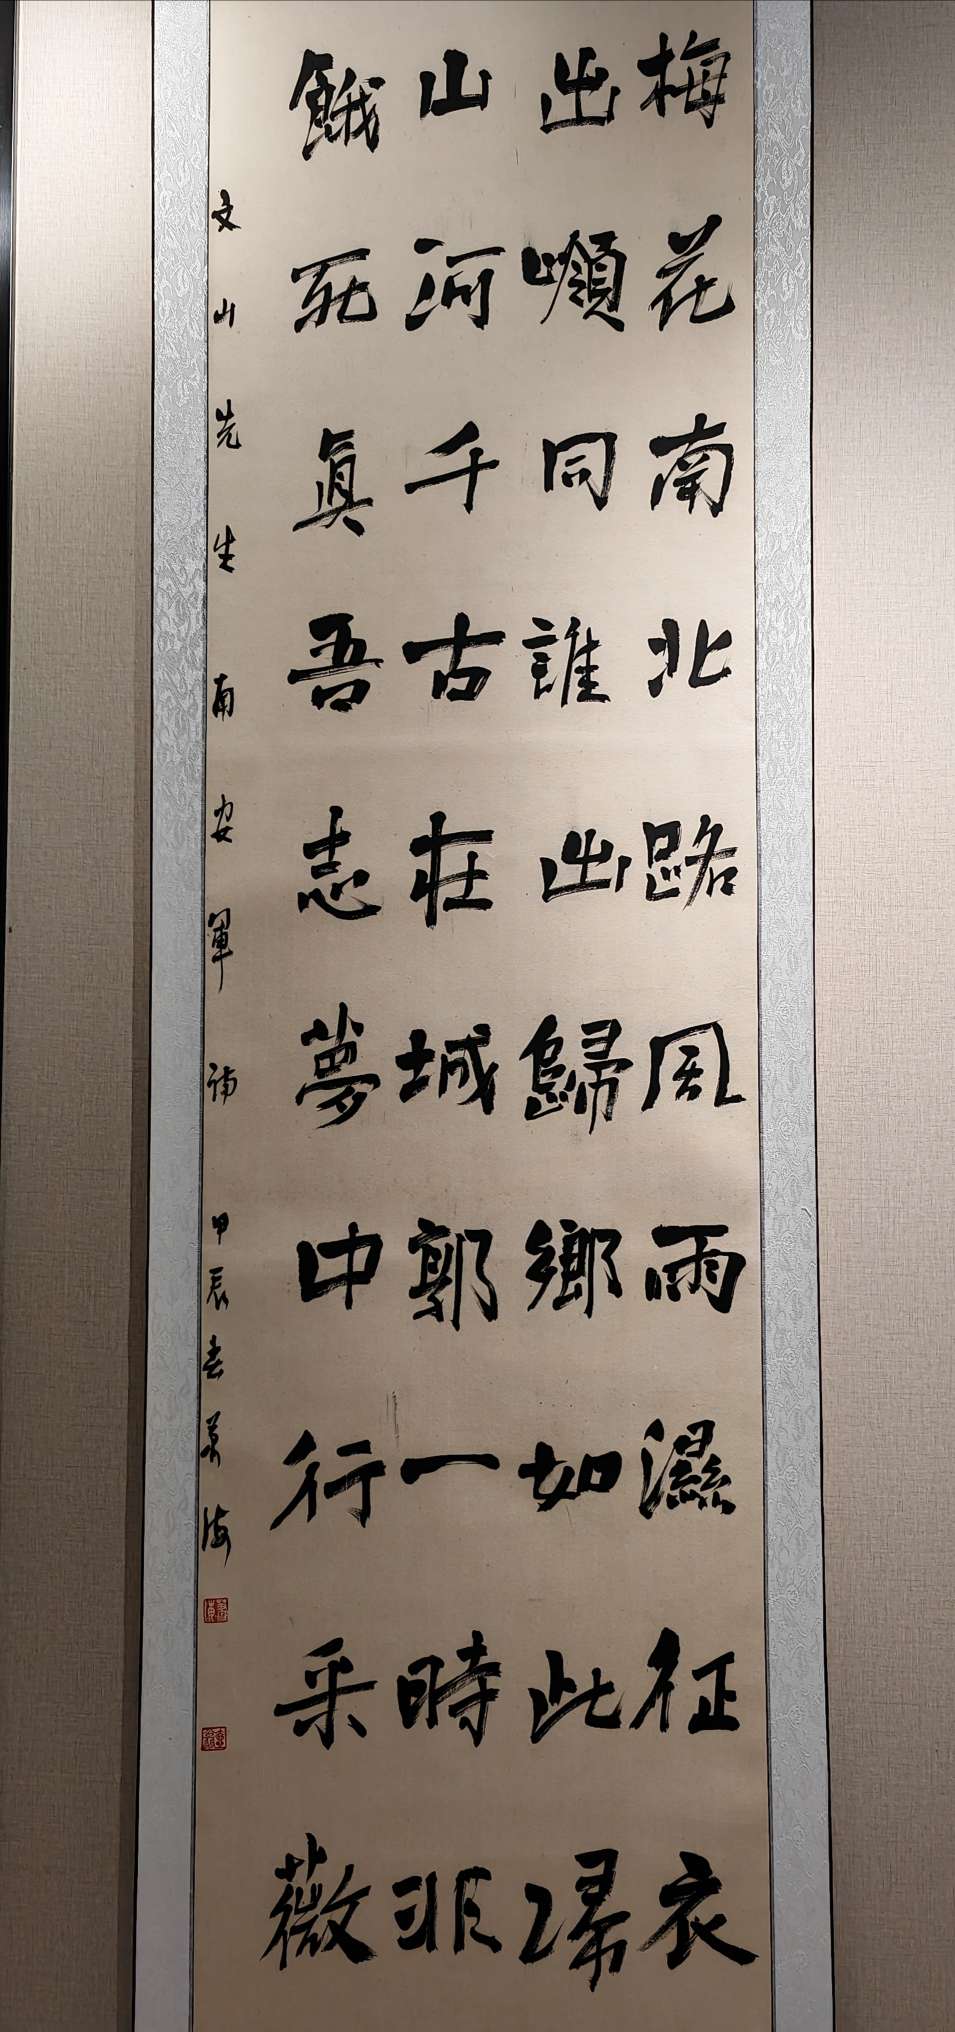 梅花南北路風雨濕征衣
出嶺同誰出歸鄉如此歸
山河千古在城郭一時非
餓死眞吾志夢中行采薇
文山先生南安軍詩 甲辰春